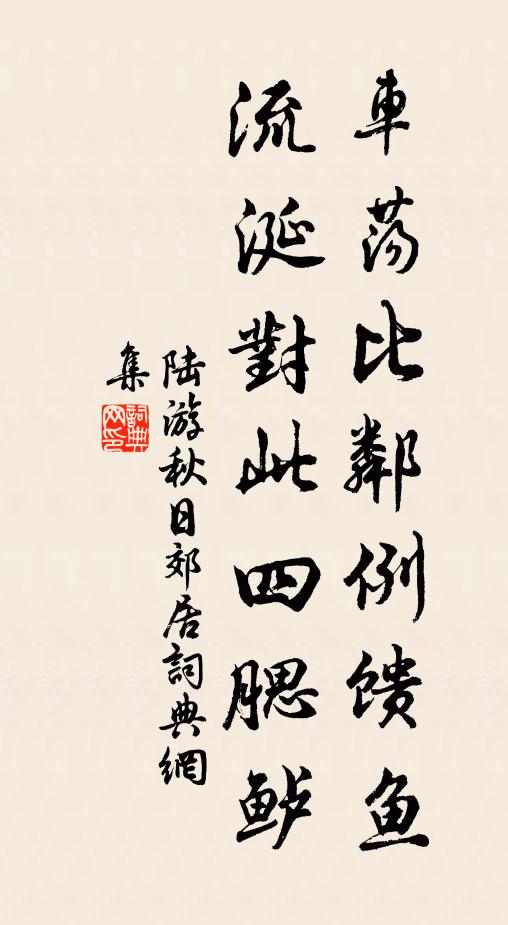 車荡比鄰例馈鱼
流涎對此四腮鲈
陆游秋日郊居詞典網
集
詞典
网印